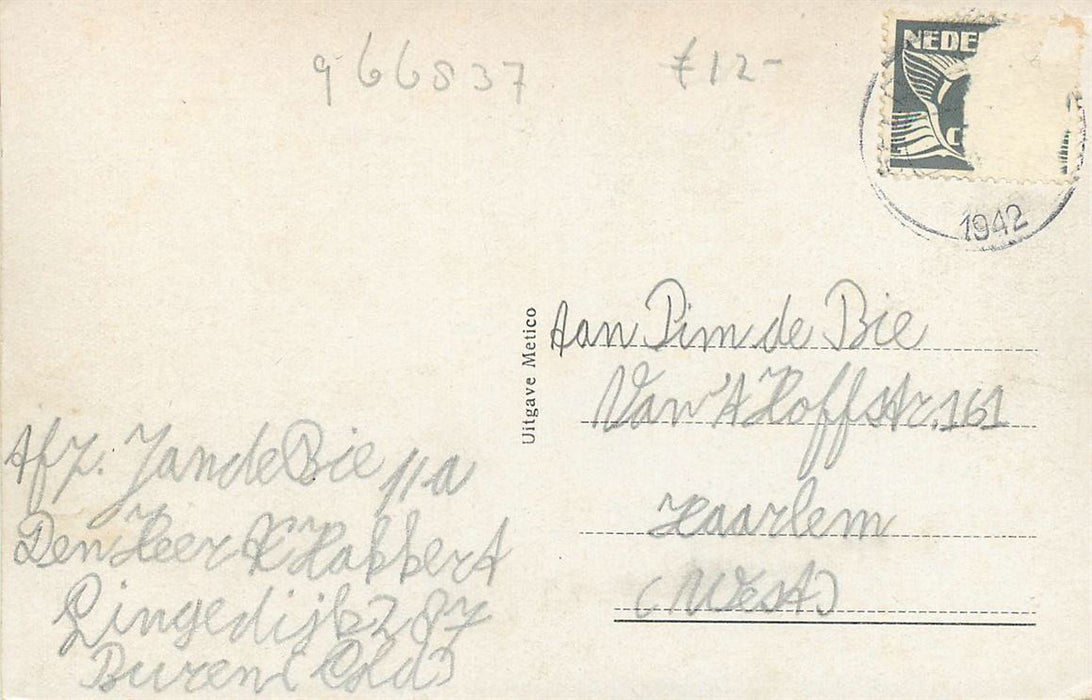 966837
£12-
NEDE
C
1942
Uitgave Metico
Aan Pim de Bie
Van 't Hoffstr. 161
Haarlem
(West)
Afz. Jan de Bie p/a
Den Heer K Hakkert
Lingedijk
Buren (Gld)